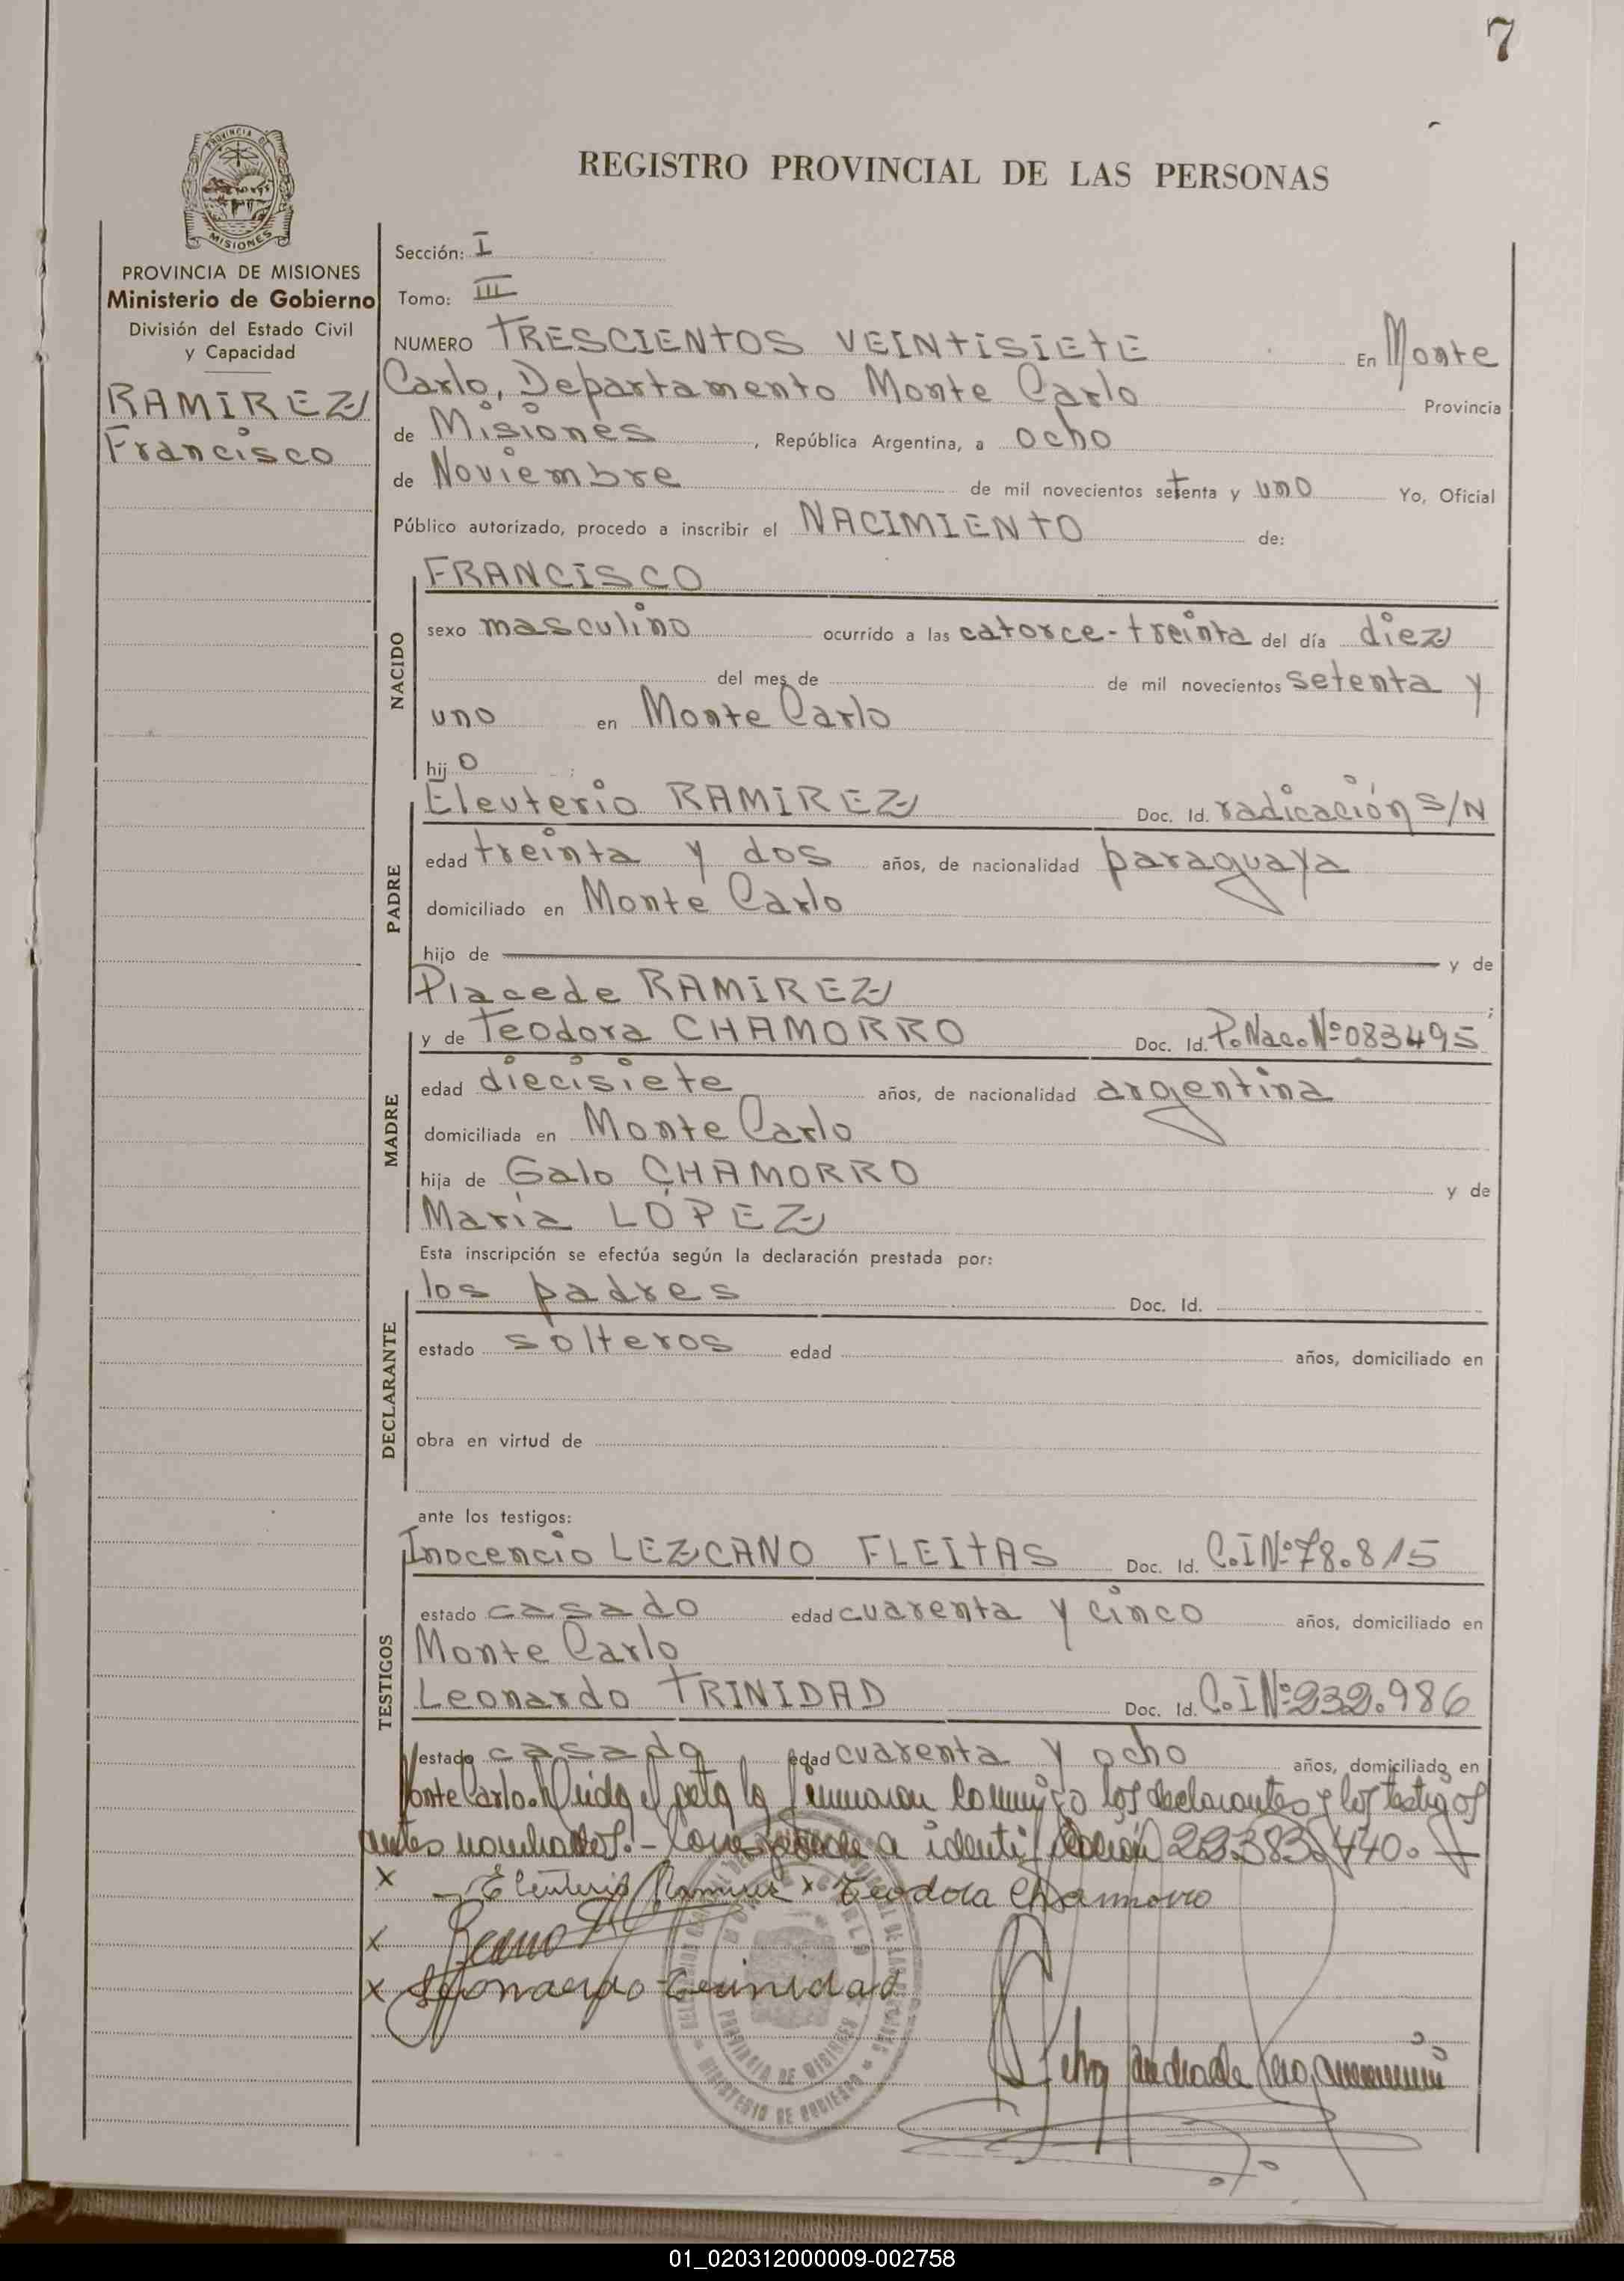 7
PROVINCIA DE
MISIONES
REGISTRO PROVINCIAL DE LAS PERSONAS
PROVINCIA DE MISIONES
Ministerio de Gobierno
División del Estado Civil
y Capacidad
RAMIREZ
Francisco
Sección: I
Tomo: III
NUMERO TRESCIENTOS VEINTISIETE En Monte
Carlo, Departamento Monte Carlo Provincia
de Misiones, República Argentina, a ocho
de Noviembre de mil novecientos setenta y uno Yo, Oficial
Público autorizado, procedo a inscribir el NACIMIENTO de:
NACIDO
FRANCISCO
sexo masculino ocurrido a las catorce-treinta del día diez
del mes de de mil novecientos setenta y
uno en Monte Carlo
hijo
PADRE
Eleuterio RAMIREZ Doc. Id. radicación S/N
edad treinta y dos años, de nacionalidad paraguaya
domiciliado en Monte Carlo
hijo de y de
Placede RAMIREZ ;
MADRE
y de Teodora CHAMORRO Doc. Id. P.Nac.Nº083495
edad diecisiete años, de nacionalidad argentina
domiciliada en Monte Carlo
hija de Galo CHAMORRO y de
María LÓPEZ
Esta inscripción se efectúa según la declaración prestada por:
DECLARANTE
los padres Doc. Id.
estado solteros edad años, domiciliado en
obra en virtud de
ante los testigos:
TESTIGOS
Inocencio LEZCANO FLEITAS Doc. Id. C.I Nº78.815
estado casado edad cuarenta y cinco años, domiciliado en
Monte Carlo
Leonardo TRINIDAD Doc. Id. C.I Nº232.986
estado casado edad cuarenta y ocho años, domiciliado en
Monte Carlo. Leída el acta la firmaron conmigo los declarantes y los testigos
antes nombrados.- Corresponde a identificación 22.383.440.
x Eleuterio Ramirez x Teodora Chamorro
x
x Leonardo Trinidad
PROVINCIA DE MISIONES
MINISTERIO DE GOBIERNO
01_020312000009-002758